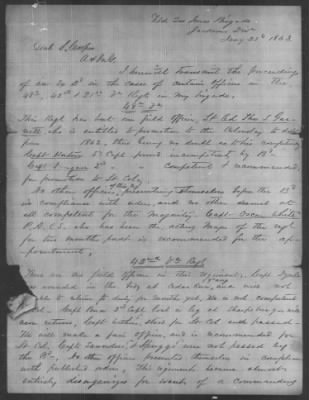 Brigade
Jany 23d 1863
I herewith transmit the proceedings
of an in the case of certain officers in the
48th, 42d & 21st Va Regts in my brigade.
48th Va
This Regt has but one field officer, Lt Col Thos S Gar-
nett, who is entitled to promotion to the Colonelcy to date
from 1862, this being no doubt as to his competency
Capt 5th Capt found incompetent by Bd
Capt competent & recommended
for promotion to Lt Col,
No other officers presenting themselves before the Bd
in compliance with orders, and no other deemed at
all competent for the Majority. Capt Oscar White
P.A.C.S. who has been the acting Major of the regt
for the months past is recommended for the ap-
pointment,
42nd Va Regt
There are no field officers in this regiment. Capt
was wounded in the leg at Cedar Run, and will not
be able to return to duty for months yet. He is not competent
to Col. Capt 2d Capt lost a leg at Sharpsburg & will
never return, Capt Withers, stood for Lt Col and passed
He will make a fair officer, and is recommended for
Lt Col. Capts Saunders & were not passed by
the Bd. No other officers presented themselves in compliance
with published orders, This regiment became almost
entirely disorganized for want of a commanding